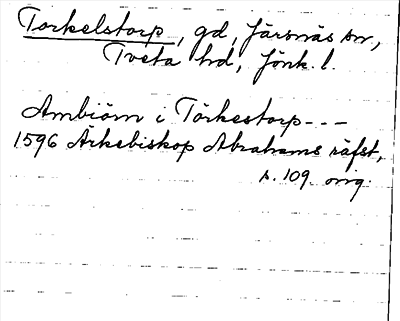 Torkelstorp, gd, Järsnäs sn,
Tveta hd, Jönk. l.
Ambiörn i Törkestorp---
1596 Ärkebiskop Abrahams räfst,
s. 109. orig.